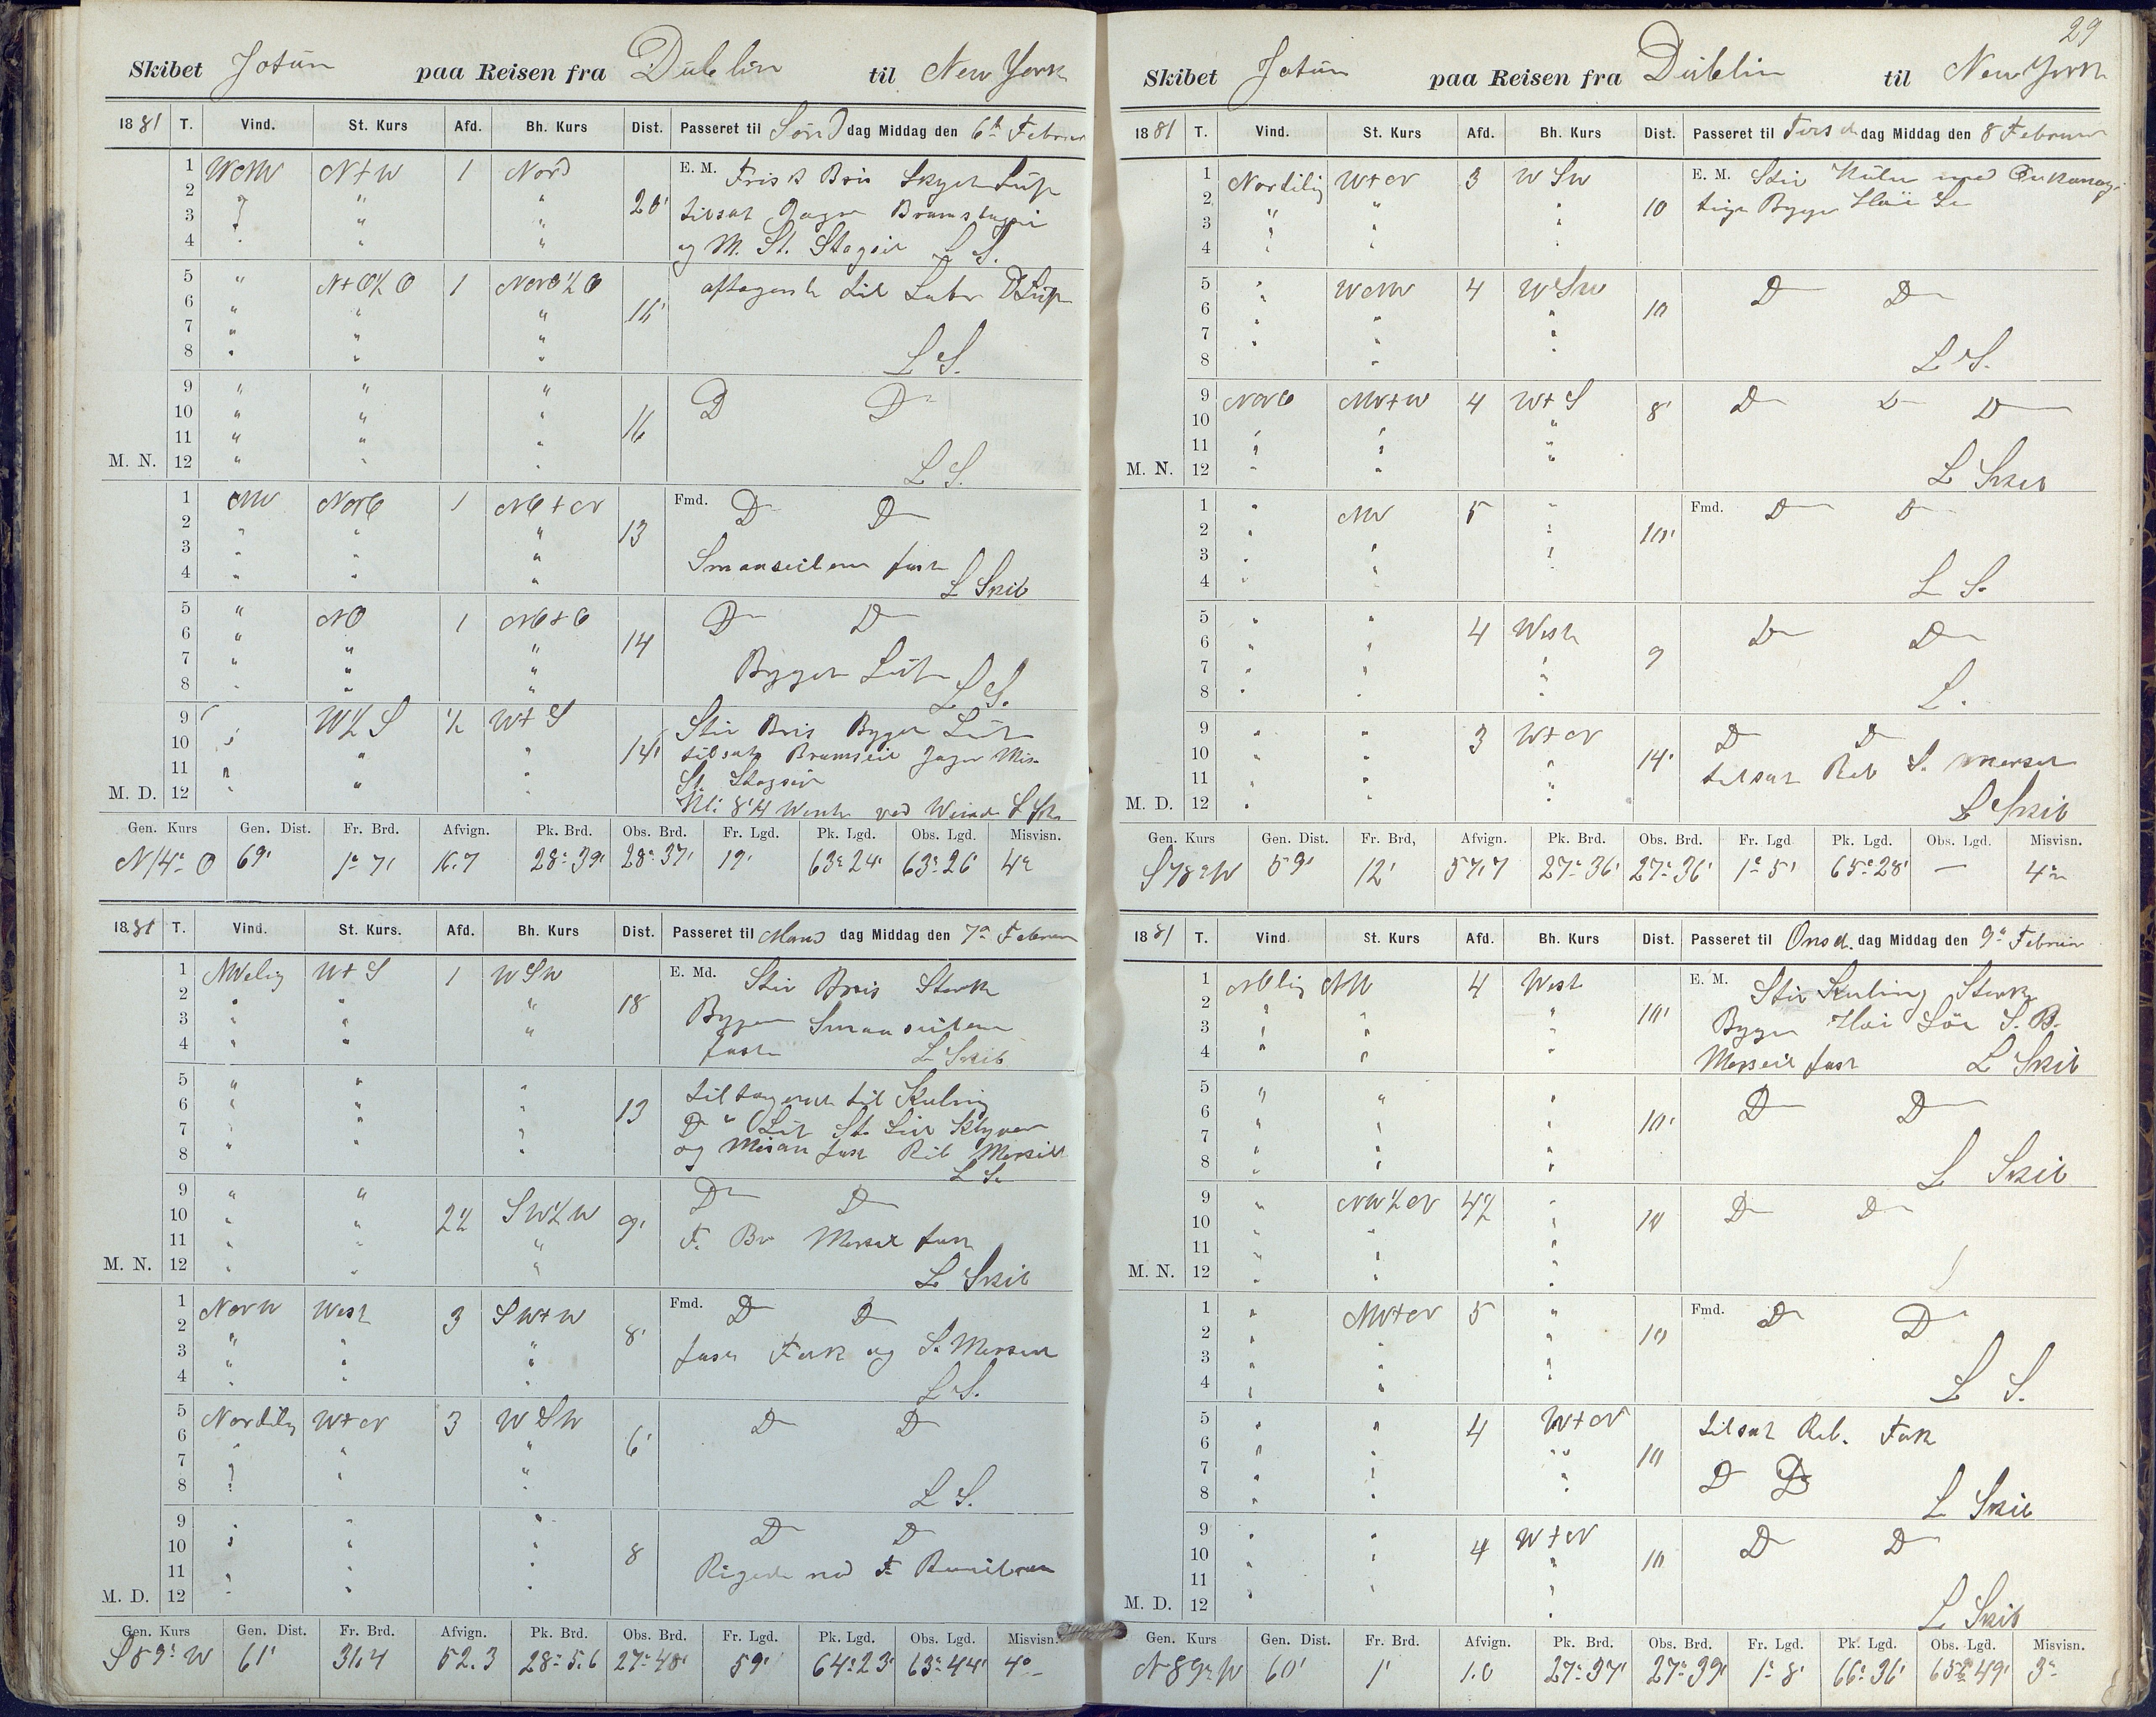 Skibet Jotun paa Reisen fra Dublin til New York
1881 T. Vind. St. Kurs Afd. Bh. Kurs Dist. Passeret til Sønd dag Middag den 6te Februar
1 WNW N+W 1 Nord E. M. Frisk Bris Skyet Luft
2 " " " 20' tilsat Jager Bramstagseil
3 " " " og M. St. Stagseil L S.
4 " " "
5 " N+O½O 1 Nord½O aftagende til Laber D Luft
6 " " " 16'
7 " " "
8 " " " L S.
9 " " " D D
10 " " "
11 " " " 16
M. N. 12 " " " L S.
1 NW NorO 1 NO+N Fmd. D D
2 " " " 13
3 " " " Smaaseilene fast
4 " " " L Skib
5 " NO 1 NO+O D D
6 " " " 14
7 " " " Byget Luft
8 " " " L S.
9 " W½S ½ W+S Stiv Bris Byget Luft
10 " " " 14' tilsat Bramseil Jager Mis.
11 " " " St. Stagseil
M. D. 12 " " " Kl: 8 1/4 Vendt
Gen. Kurs Gen. Dist. Fr. Brd. Afvign. Pk. Brd. Obs. Brd. Fr. Lgd. Pk. Lgd. Obs. Lgd. Misvisn.
N 14° O 69' 1° 7' 16.7 28° 39' 28° 37' 19' 63° 24' 63° 26' 4°
1881 T. Vind. St. Kurs. Afd. Bh. Kurs Dist. Passeret til Mand dag Middag den 7de Februar
1 NWelig W+S 1 WSW E. Md. Stiv Bris Sterke
2 " " " 18
3 " " " Byger Smaaseilene
4 " " fast L Skib
5 " " " tiltagende til Kuling
6 " " " 13 D Luft St. Seil Klyver
7 " " " og Mesan fast Reb Merseil
8 " " " L S.
9 " " D D
10 " " 2½ SW½W 9' F. Br Merseil fast
11 " " "
M. N. 12 " " " L Skib
1 NorW West 3 SW+W Fmd. D D
2 " " " 8'
3 " " " fast Fok og S. Merseil
4 " " " L S.
5 Nordelig W+N 3 WSW D D
6 " " " 6'
7 " " "
8 " " " L S.
9 " " " D D
10 " " " 8
11 " " "
M. D. 12 " " "
Gen. Kurs Gen. Dist. Fr. Brd. Afvign. Pk. Brd. Obs. Brd. Fr. Lgd. Pk. Lgd. Obs. Lgd. Misvisn.
S 59° W 61' 31.4 52.3 28° 5.6 27° 48' 59' 64° 23' 63° 44' 4°
29
Skibet Jotun paa Reisen fra Dublin til New York
1881 T. Vind. St. Kurs Afd. Bh. Kurs Dist. Passeret til Tirsd dag Middag den 8 Februar
1 Nordelig W+N 3 WSW E. M. Stiv Kuling med Orkanag-
2 " " " 10 tige Byger Høi Sø
3 " " "
4 " " "
5 " WNW 4 WSW D D
6 " " " 10
7 " " "
8 " " " L S.
9 NorO NW+W 4 W+S 8' D D D
10 "
11 " " "
M. N. 12 " " " L Skib
1 " NW 5 " Fmd. D D
2 " " 10'
3 " " "
4 " " L S.
5 " " 4 West D D
6 " " " 9
7 " " "
8 " " " L.
9 " " 3 W+N D D
10 " " " 14' tilsat Reb S. Merseil
11 " " "
M. D. 12 " " " L Skib
Gen. Kurs Gen. Dist. Fr. Brd, Afvign. Pk. Brd. Obs. Brd. Fr. Lgd Pk. Lgd. Obs. Lgd. Misvisn.
S 78° W 59' 12' 57.7 27° 36' 27° 36' 1° 5' 65° 28' — 4°
1881 T. Vind. St. Kurs Afd. Bh. Kurs Dist. Passeret til Onsd. dag Middag den 9de Februar
1 NOlig NW 4 West E. M. Stiv Kuling Sterke
2 " " " 10' Byger Høi Sø S. B.
3 " " "
4 " " " Merseil fast L Skib
5 " " " D D
6 " " " 10'
7 " " "
8 " " " L Skib
9 " NW½N 4½ " D D
10 " " " 10
11 " " "
M. N. 12 " " "
1 " NW+N 5 " Fmd. D D
2 " " " 10
3 " " "
4 " " " L S.
5 " " 4 W+N tilsat Reb. Fok
6 " " " 10
7 " " " D D
8 " " L Skib
9 " " 4 W+N D D
10 " " " 10
11 " " "
M. D. 12 " " L Skib
Gen. Kurs Gen. Dist. Fr. Brd. Afvign. Pk. Brd. Obs. Brd. Fr. Lgd. Pk. Lgd. Obs. Lgd. Misvisn.
N 89° W 60' 1' 1.0 27° 37' 27° 39' 1° 8' 66° 36' 65° 49' 3°